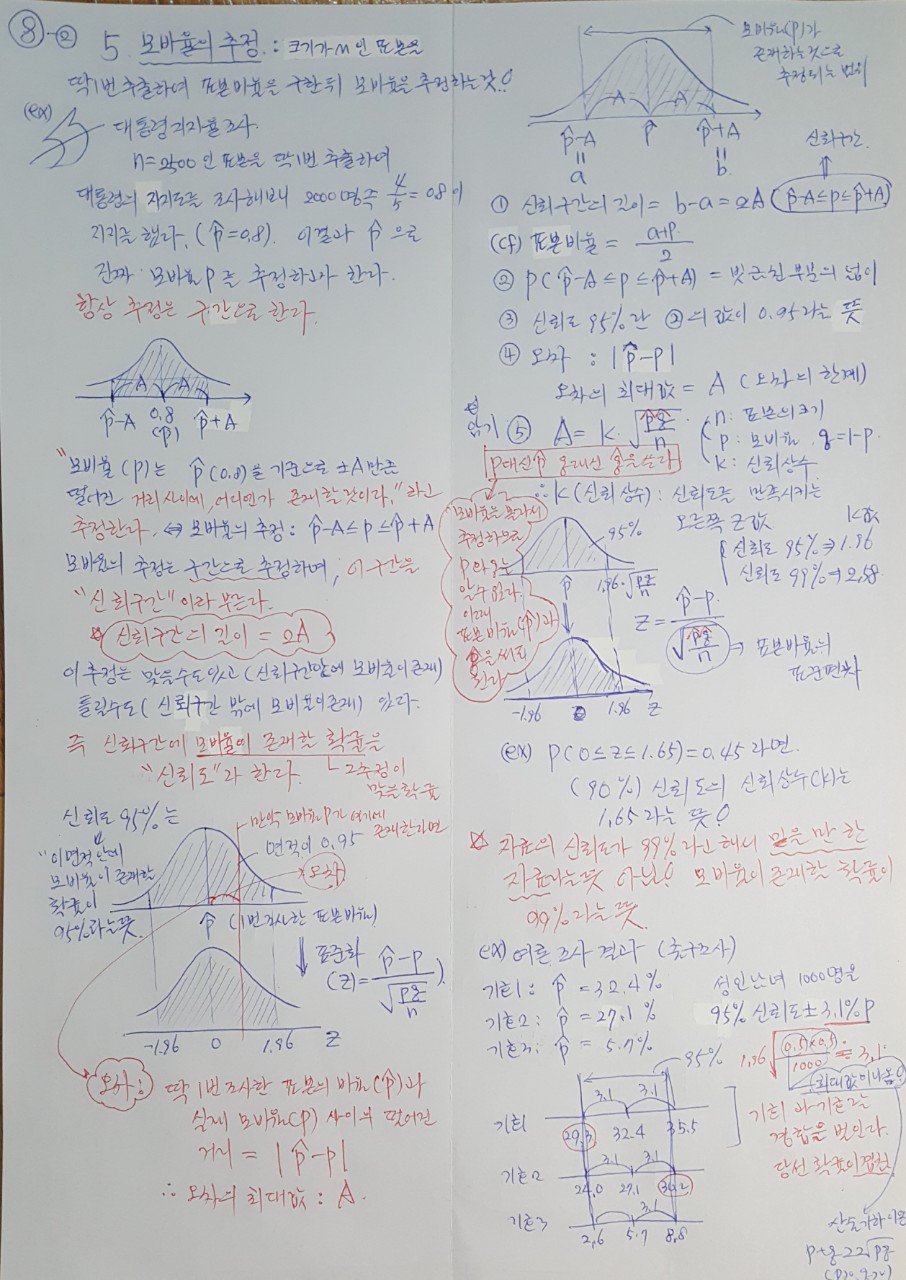 ⑧-②
5. 모비율의 추정 : 크기가 n인 표본을
딱 1번 추출하여 표본비율을 구한 뒤 모비율을 추정하는 것!
(ex)
대통령 지지율 조사.
n=2500인 표본을 딱 1번 추출하여
대통령의 지지도를 조사해보니 2000명 즉 4/5 = 0.8이
지지를 했다. (p̂=0.8). 이결과 p̂으로
진짜 모비율 p를 추정하고자 한다.
항상 추정은 구간으로 한다.
A A
p̂-A 0.8 p̂+A
(p̂)
"모비율(p)는 p̂(0.8)을 기준으로 ±A만큼
떨어진 거리 사이에, 어디엔가 존재할 것이다." 라고
추정한다. ⇔ 모비율의 추정 : p̂-A≤p≤p̂+A
모비율의 추정은 구간으로 추정하며, 이 구간을
"신뢰구간"이라 부른다.
☆ 신뢰구간의 길이 = 2A
이 추정은 맞을수도 있고 (신뢰구간안에 모비율이 존재)
틀릴수도 (신뢰구간 밖에 모비율이 존재) 있다.
즉 신뢰구간에 모비율이 존재할 확률을
"신뢰도"라 한다. 그 추정이
맞을확률
신뢰도 95%는
만약 모비율 p가 여기에
존재한다면
면적이 0.95
오차
"이면적안에
모비율이 존재할
확률이
95%라는 뜻.
p̂ (1번 조사한 표본비율)
↓ 표준화
(Z) = p̂-p / √(pq/n)
-1.96 0 1.96 Z
오차 : 딱 1번 조사한 표본의 비율(p̂)과
실제 모비율(p) 사이의 떨어진
거리 = |p̂-p|
∴ 오차의 최대값 : A.
모비율(p)가
존재하는것으로
추정되는 범위
A A
p̂-A p̂ p̂+A
a b
신뢰구간
① 신뢰구간의 길이 = b-a = 2A (p̂-A≤p≤p̂+A)
(cf) 표본비율 =
② P(p̂-A≤p≤p̂+A) = 빗금친 부분의 넓이
③ 신뢰도 95%란 ②의 값이 0.95라는 뜻
④ 오차 : |p̂-p|
오차의 최대값 = A (오차의 한계)
암기 ⑤ A = k·√(p̂q̂/n)
n : 표본의 크기
p : 모비율, q=1-p.
k : 신뢰상수
p대신 p̂ q대신 q̂을 쓰라
∴ k(신뢰상수) : 신뢰도를 만족시키는
오른쪽 Z값
k값
신뢰도 95% ⇒ 1.96
신뢰도 99% → 2.58
모비율을 몰라서
추정하므로
p와 q는
알수 없다.
이때
표본비율(p̂)과
q̂을 써도
된다
95%
p̂ 1.96·√(pq/n)
Z = p̂-p / √(p̂q̂/n) → 표본비율의
표준편차
-1.96 0 1.96 Z
(ex) P(0≤Z≤1.65)=0.45 라면.
(90%) 신뢰도의 신뢰상수(k)는
1.65라는 뜻!
☆ 자료의 신뢰도가 99%라고 해서 믿을 만 한
자료라는 뜻 아님! 모비율이 존재할 확률이
99%라는 뜻
ex) 여론조사 결과 (출구조사)
기호1 : p̂ = 32.4%
기호2 : p̂ = 27.1%
기호3 : p̂ = 5.7%
성인남녀 1000명을
95% 신뢰도 ±3.1%p
1.96√((0.5)×(0.5)/1000) ≒ 3.1
(최대값이 나옴!)
95%
3.1 3.1
기호1 29.3 32.4 35.5
3.1 3.1
기호2 24.0 27.1 30.2
3.1
기호3 2.6 5.7 8.8
기호1과 기호2는
경합을 벌인다.
당선 확률이 겹침
산술기하 이용
p+q≥2√pq
(p>0, q>0)